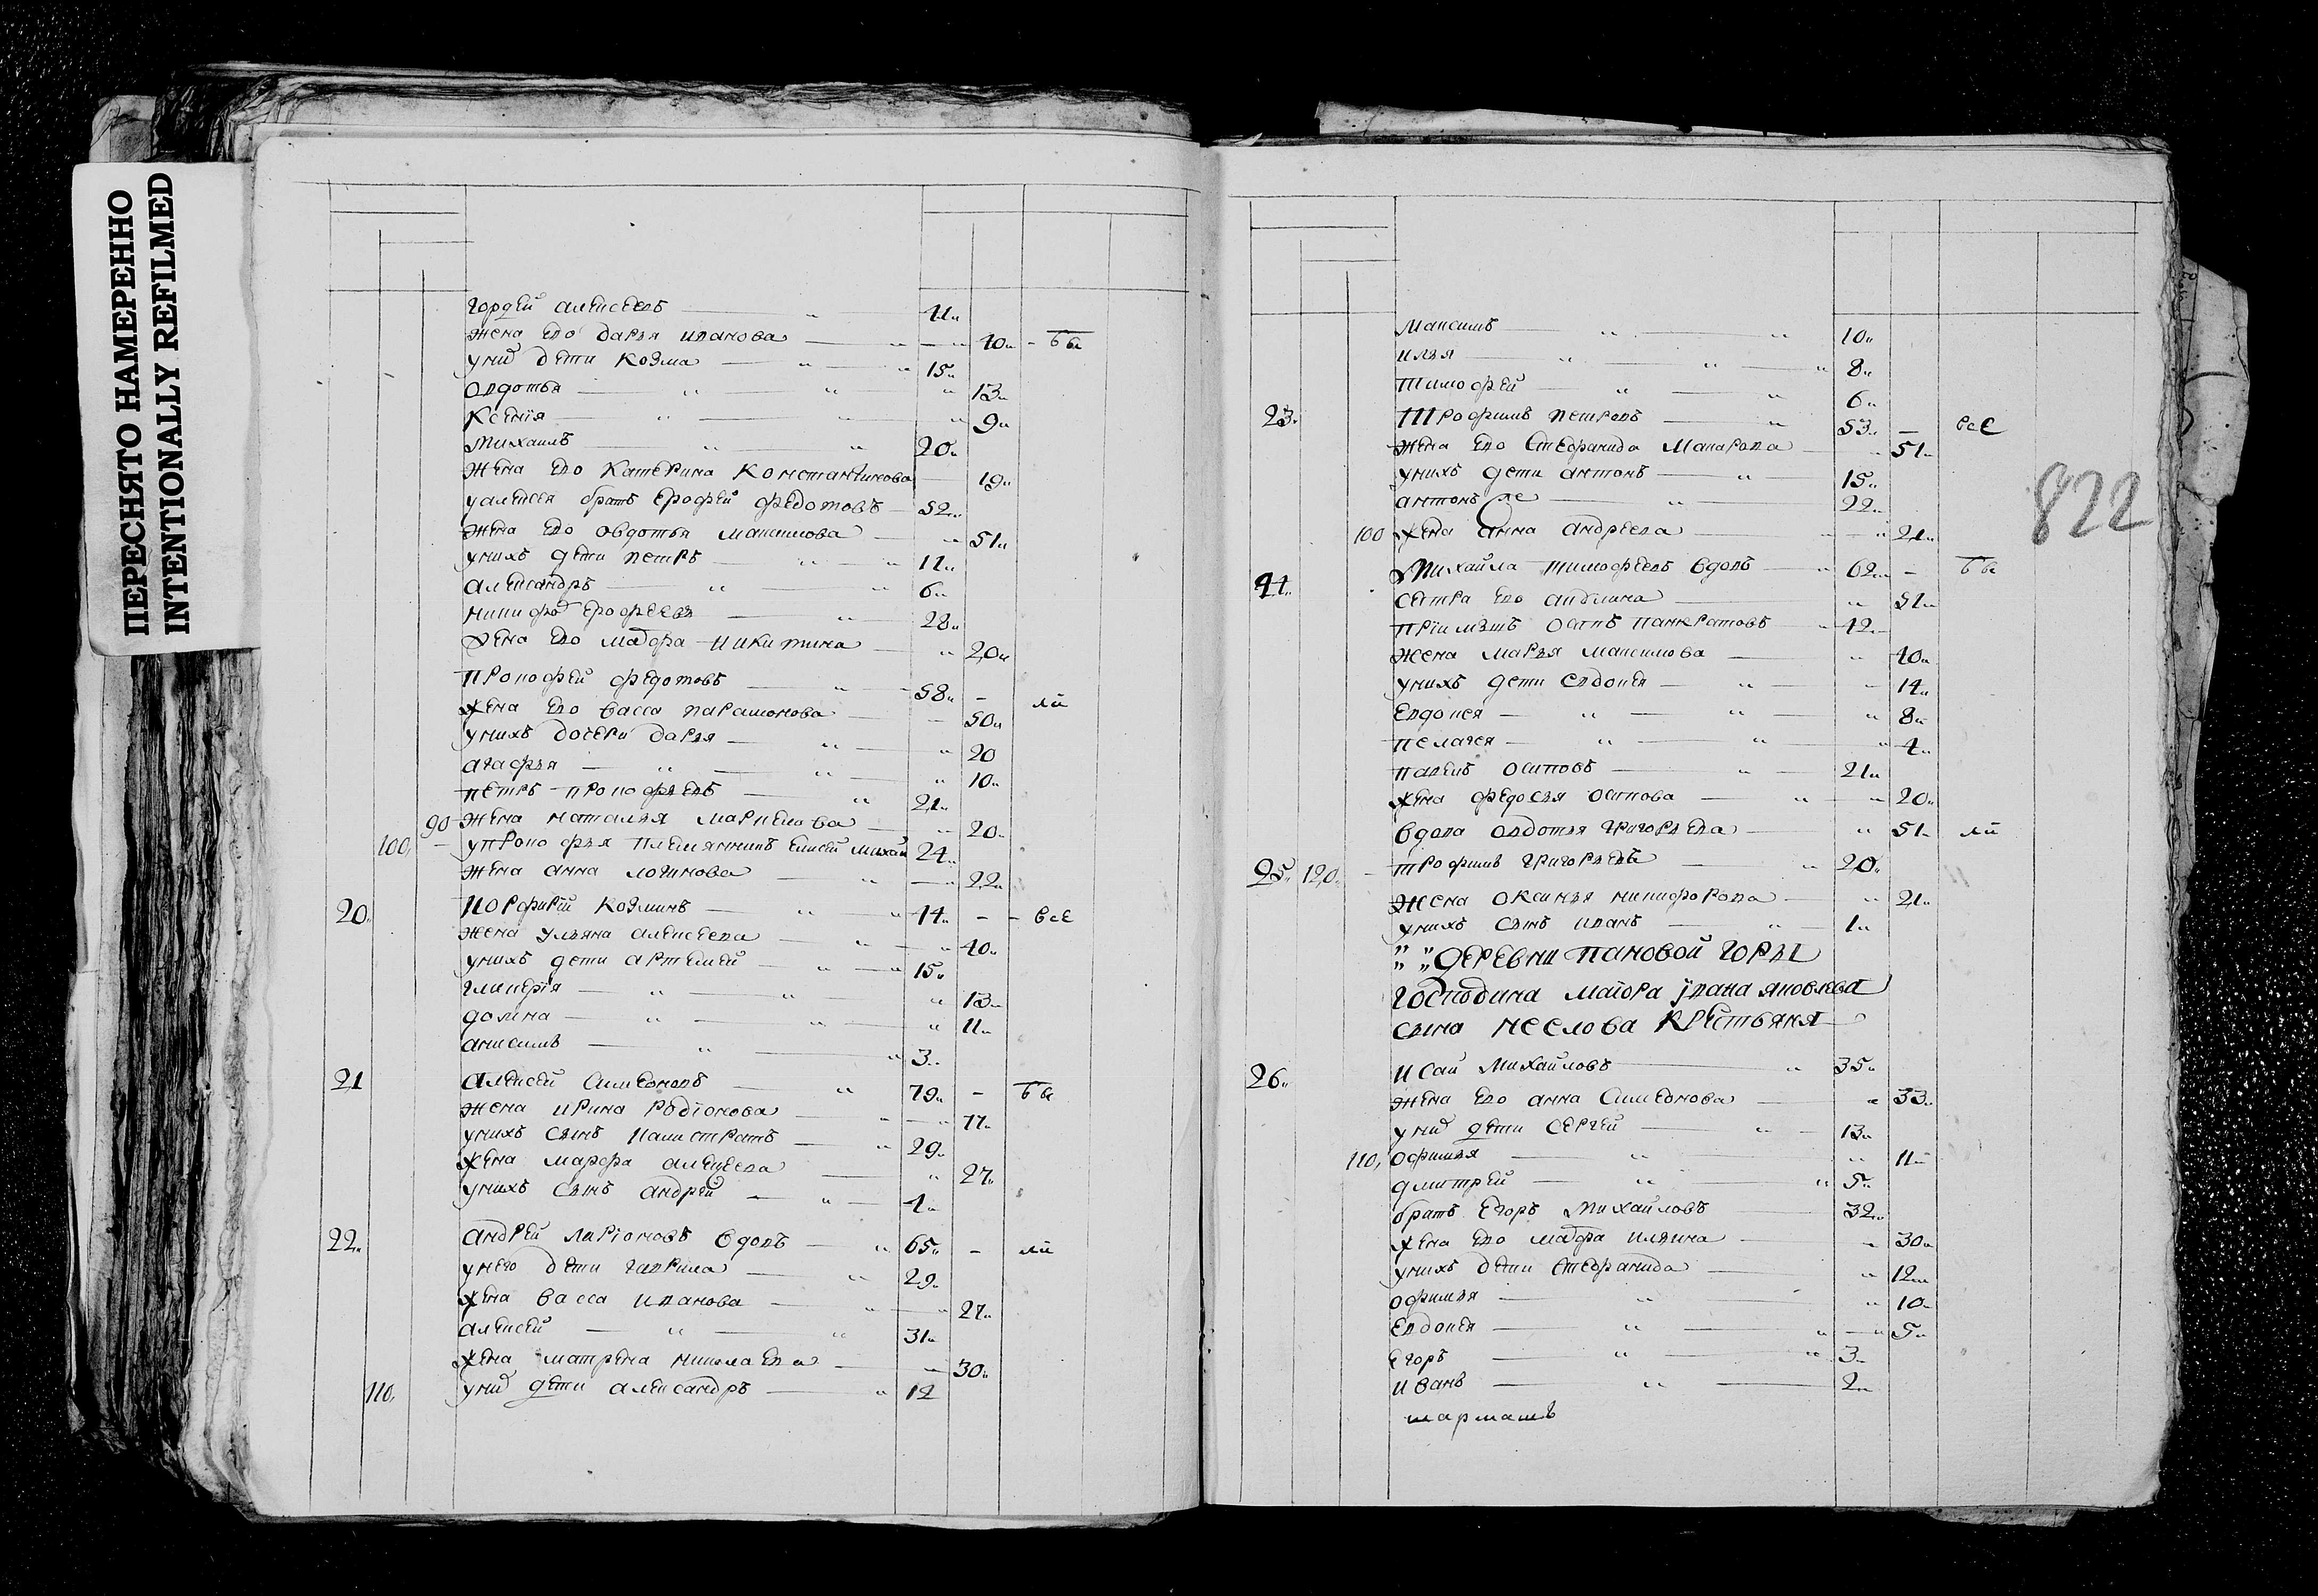 ПЕРЕСНЯТО НАМЕРЕННО
INTENTIONALLY REFILMED
гордей алеѯеевъ 41
жена его дарья иванова 40 ббы
у них дети козма 15
овдотья 13
Ксения 9
михаилъ 20
жена его катерина константинова 19
у алексея братъ ерофей федотовъ 52
жена его овдотья максимова 51
у нихъ дети петръ 11
александръ 6
никифоръ ерофеевъ 28
жена его мавра никитина 20
прокофей федотовъ 58 ли
жена его васса парамонова 50
у нихъ дочери дарья 20
агафья 10
петръ прокофьевъ 21
90 жена наталья маркелова 20
100 у прокофья племянникъ елисей михай 24
жена анна логинова 22
20 порфирей козминъ 44 все
жена ульяна алексеева 40
у нихъ дети артемей 15
гликерїя 13
домна 11
анисимъ 3
21 алексей симеоновъ 79 ббы
жена ирина родїонова 77
у нихъ сынъ калистратъ 29
жена марфа алексеева 27
у нихъ сынъ андрей 4
22 андрей ларїоновъ вдовъ 65 ли
у него дети гаврила 29
жена васса иванова 27
алексей 31
жена матрена николаева 30
110 у них дети александръ 12
822
максимъ 10
илья 8
тимофей 6
23 трофимъ петровъ 53 все
жена его стефанида макарова 51
у нихъ дети антонъ 15
антонъ же 22
100 жена анна андреева 21
михайла тимофеевъ вдовъ 62 ббы
сестра его акилина 51
прїимышъ осипъ панкратовъ 42
жена марья максимова 40
у нихъ дети евдокея 14
евдокея 8
пелагея 4
павелъ осиповъ 21
жена федосья осипова 20
вдова овдотья григорьева 51 ли
25 120 трофимъ григорьевъ 20
жена оксинья никифорова 21
у нихъ сынъ иванъ 1
деревни пановой горы
господина маіора јвана яковлева
сына неелова крестьяня
26 исай михайловъ 35
жена его анна симеонова 33
у них дети сергей 13
110 офимья 11
дмитрей 5
братъ егоръ михайловъ 32
жена его мавра ильина 30
у нихъ дети стефанида 12
офимья 10
евдокея 5
егоръ 3
иванъ 2